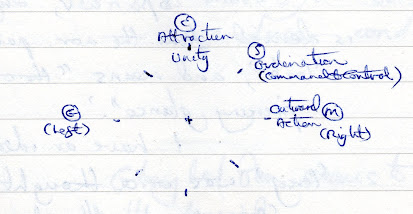 C
Attraction
Unity
S
Ordination
(Command & Control)
Outward M
Action
(Right)
E
(Left)